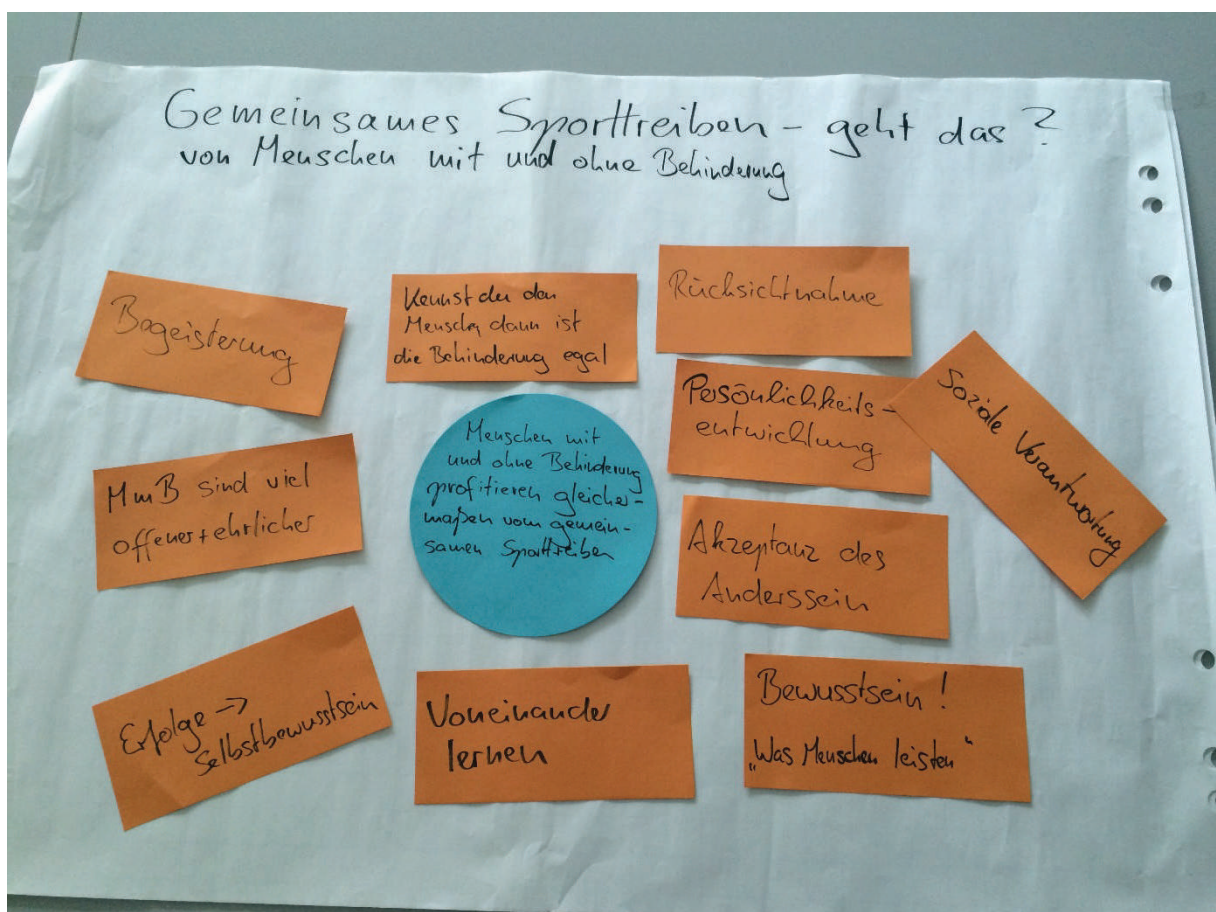 Gemeinsames Sporttreiben - geht das ?
von Menschen mit und ohne Behinderung
Begeisterung
Kennst du den
Menschen dann ist
die Behinderung egal
Rücksichtnahme
Persönlichkeits-
entwicklung
Soziale Verantwortung
MmB sind viel
offener + ehrlicher
Menschen mit
und ohne Behinderung
profitieren gleicher-
maßen vom gemein-
samen Sporttreiben
Akzeptanz des
Anderssein
Erfolge →
Selbstbewusstsein
Voneinander
lernen
Bewusstsein !
„Was Menschen leisten“